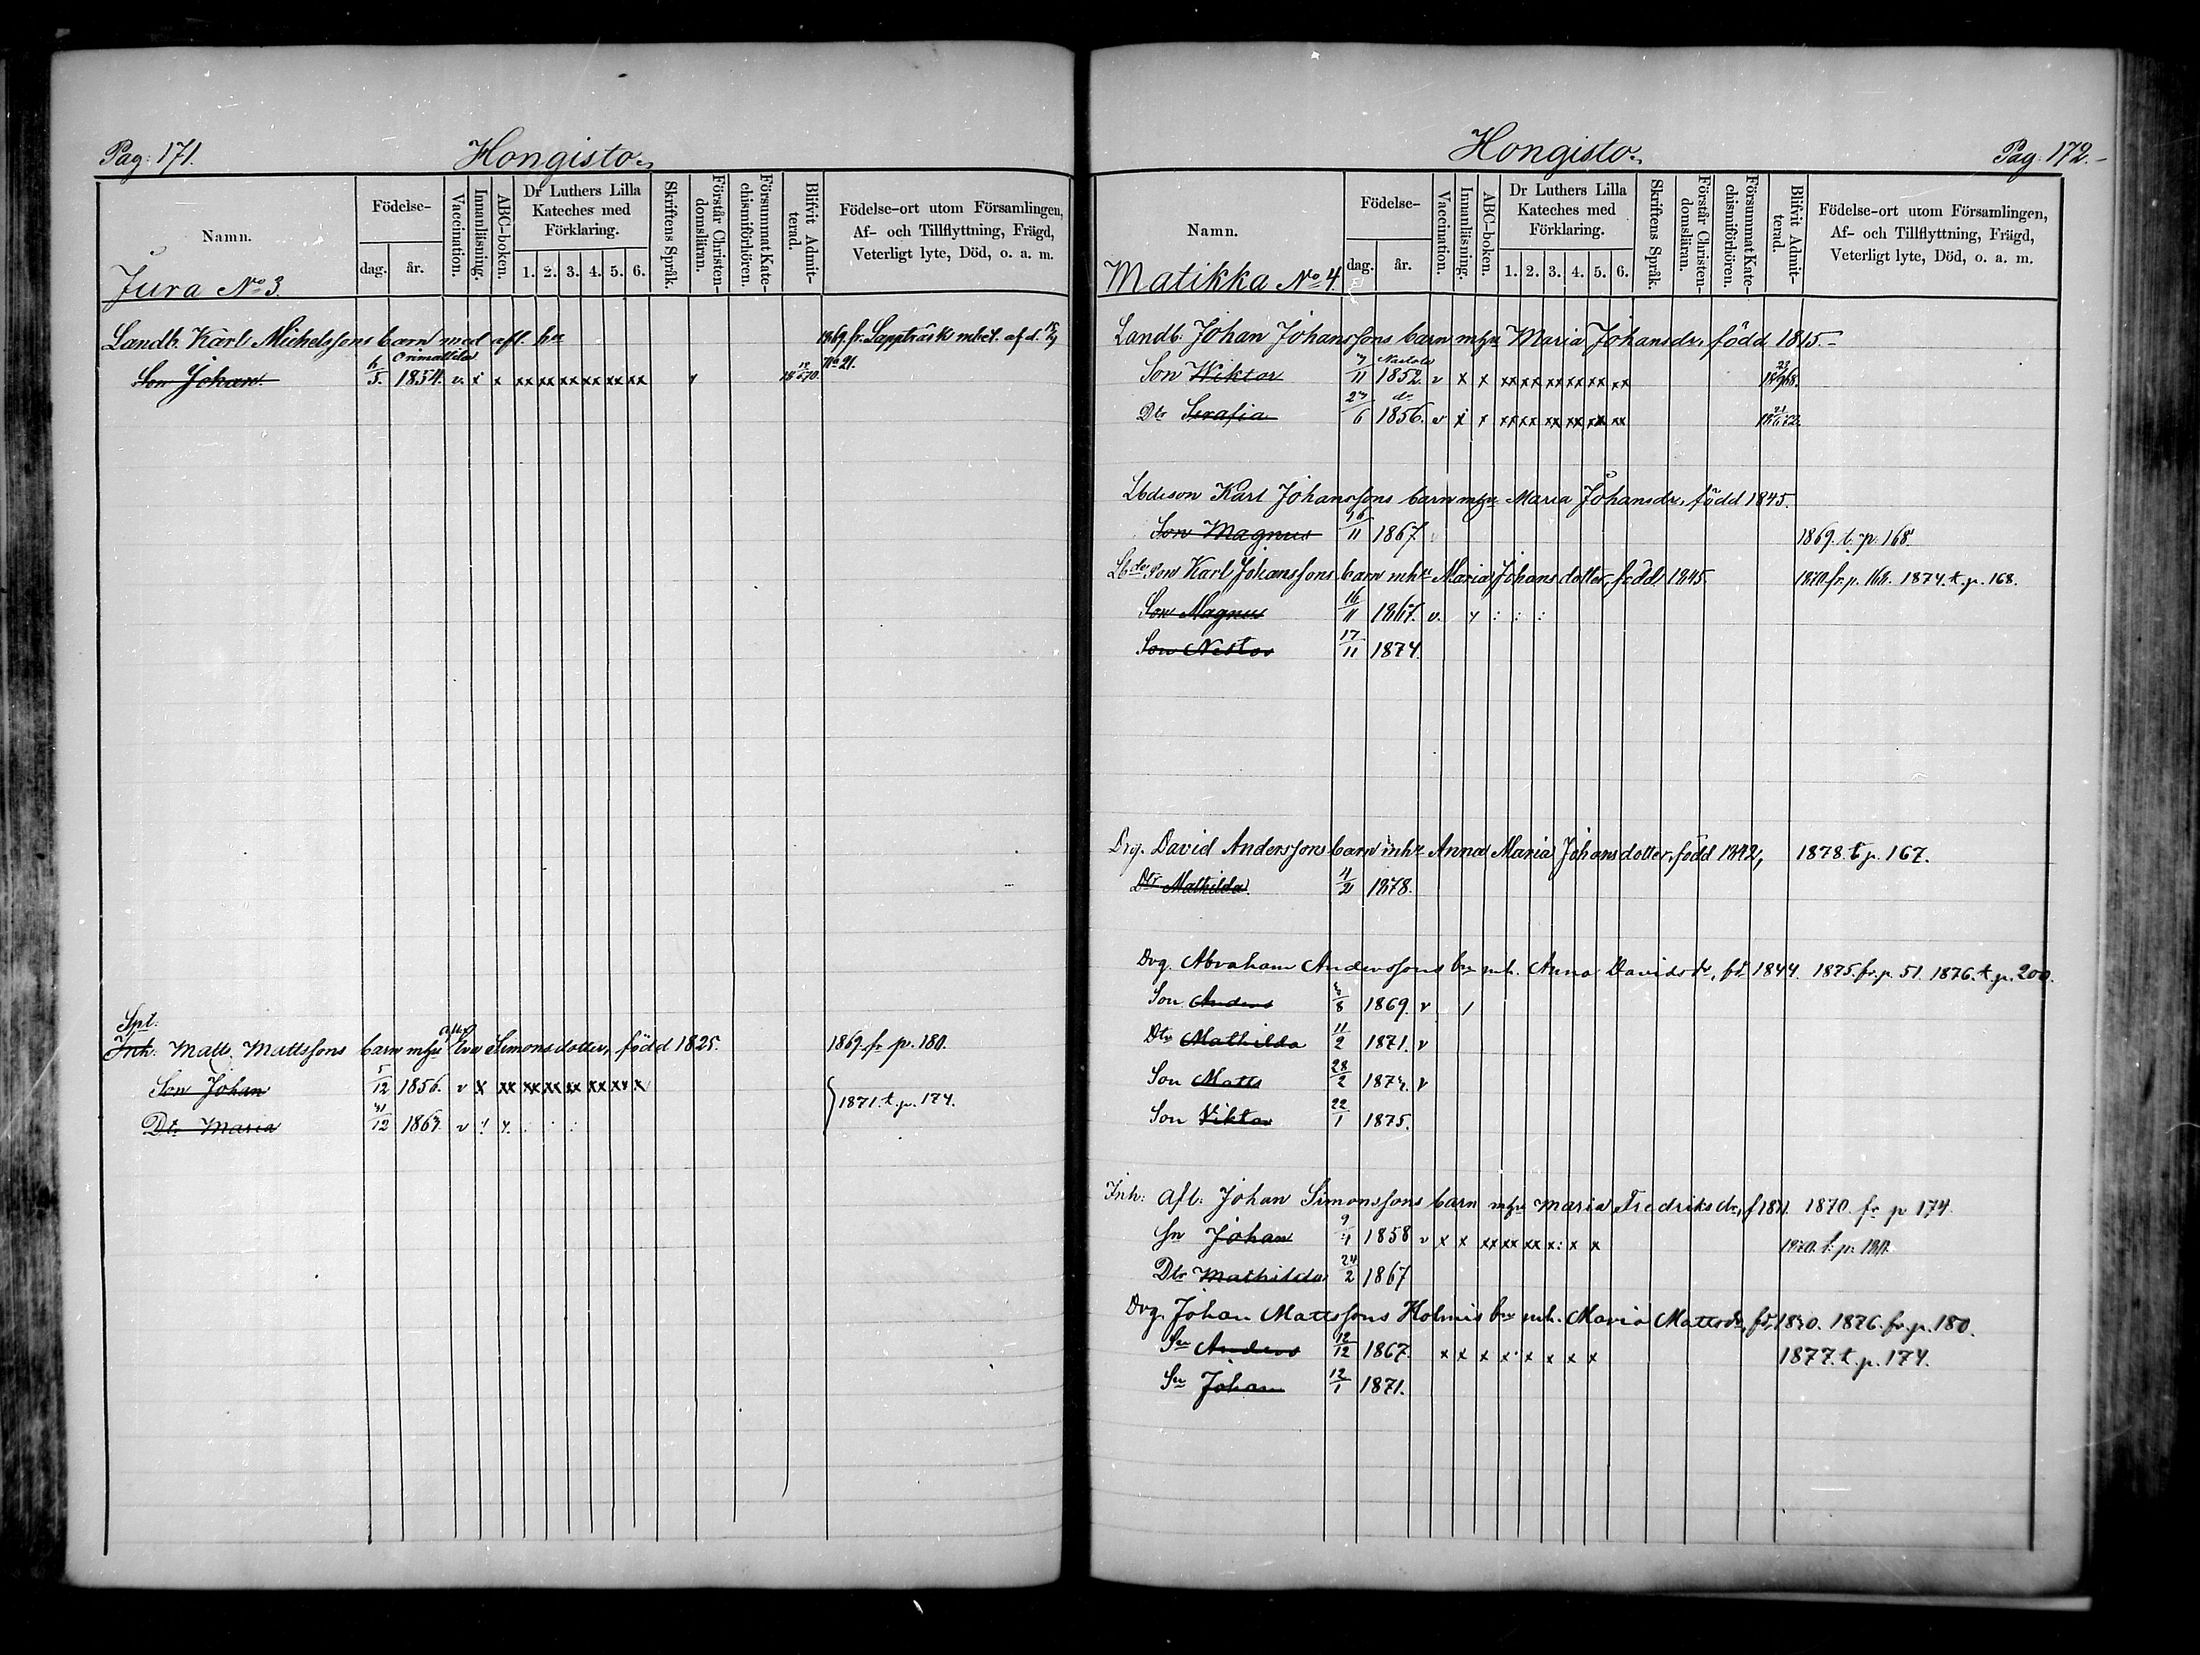 Pag. 171.
Hongisto.
Namn.
Födelse-
dag.
år.
Vaccination.
Innanläsning.
ABC-boken.
Dr Luthers Lilla
Kateches med
Förklaring.
1. 2. 3. 4. 5. 6.
Skriftens Språk.
Förstår Christen-
domsläran.
Försummat Kate-
chismiförhören.
Blifvit Admit-
terad.
Födelse-ort utom Församlingen,
Af- och Tillflyttning, Frägd,
Veterligt lyte, Död, o. a. m.
Jura No 3.
Landb. Karl Michelssons barn med afl. hu 1869. fr. Lappträsk mbet. af d.
Orimattila
Son Johan. 6/5. 1854. v. x x xx xx xx xx xx xx No 21.
Spt.
Inh: Matts Mattssons barn mhu Eva Simonsdotter, född 1825. 1869. fr p. 180.
Son Johan 5/12 1856. v x xx xx xx xx xx xx x
1871. t. p. 174.
Dtr Maria 31/12 1863. v
Hongisto.
Pag. 172.
Namn.
Födelse-
dag.
år.
Vaccination.
Innanläsning.
ABC-boken.
Dr Luthers Lilla
Kateches med
Förklaring.
1. 2. 3. 4. 5. 6.
Skriftens Språk.
Förstår Christen-
domsläran.
Försummat Kate-
chismiförhören.
Blifvit Admit-
terad.
Födelse-ort utom Församlingen,
Af- och Tillflyttning, Frägd,
Veterligt lyte, Död, o. a. m.
Matikka No 4.
Landb. Johan Johanssons barn mhu Maria Johansdr, född 1815.
Nastola
Son Wiktor 7/11 1852. v x x xx xx xx xx xx xx
do
Dtr Serafia 27/6 1856. v x x xx xx xx xx xx xx
Lbdeson Karl Johanssons barn mhu Maria Johansdr, född 1845.
Son Magnus 16/11 1867 1869. t. p. 168.
Lbdes Son Karl Johanssons barn mhu Maria Johans dotter, född 1845 1870. fr. p. 168. 1874. t. p. 168.
Son Magnus 16/11 1867. v.
Son Nestor 17/11 1874.
Drg. David Anderssons barn mhu Anna Maria Johansdotter, född 1842, 1878. t p. 167.
Dtr Mathilda. 4/2 1878.
Drg. Abraham Anderssons bn mh. Anna Davidsdr, fd. 1844. 1875. fr. p. 51. 1876. t. p. 200.
Son Anders 1869. v /
Dtr Mathilda 11/2 1871. v
Son Matts 28/2 1873. v
Son Viktor 22/1 1875.
Inh: afl. Johan Simonssons barn mhu Maria Fredriksdr, f 1870. fr p 174.
Sn Johan 1858 v x x xx xx xx x: x x 1870. t. p. 180.
Dtr Mathilda 24/2 1867
Drg. Johan Mattssons Holmis bn mh. Maria Mattsdr, fd. 1830. 1876. fr. p. 180.
Sn Anders 12/12 1867. x x x x x x x x 1877. t. p. 174.
Sn Johan 12/1 1871.